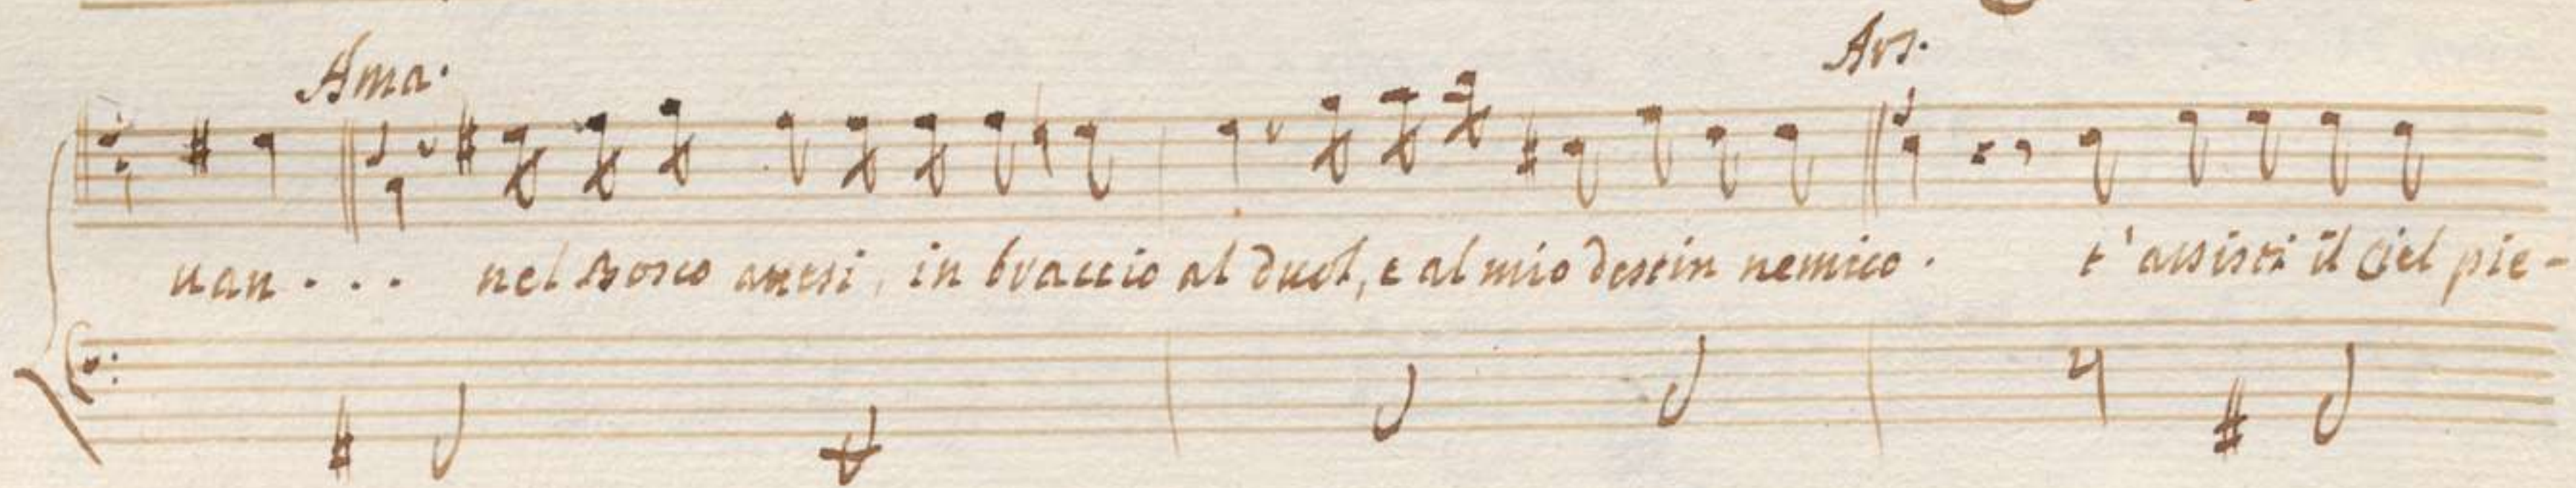 Ama. Ars.
uan... nel Bosco antesi, in braccio al duol, e al mio destin nemico. t'assisti il Ciel pie-